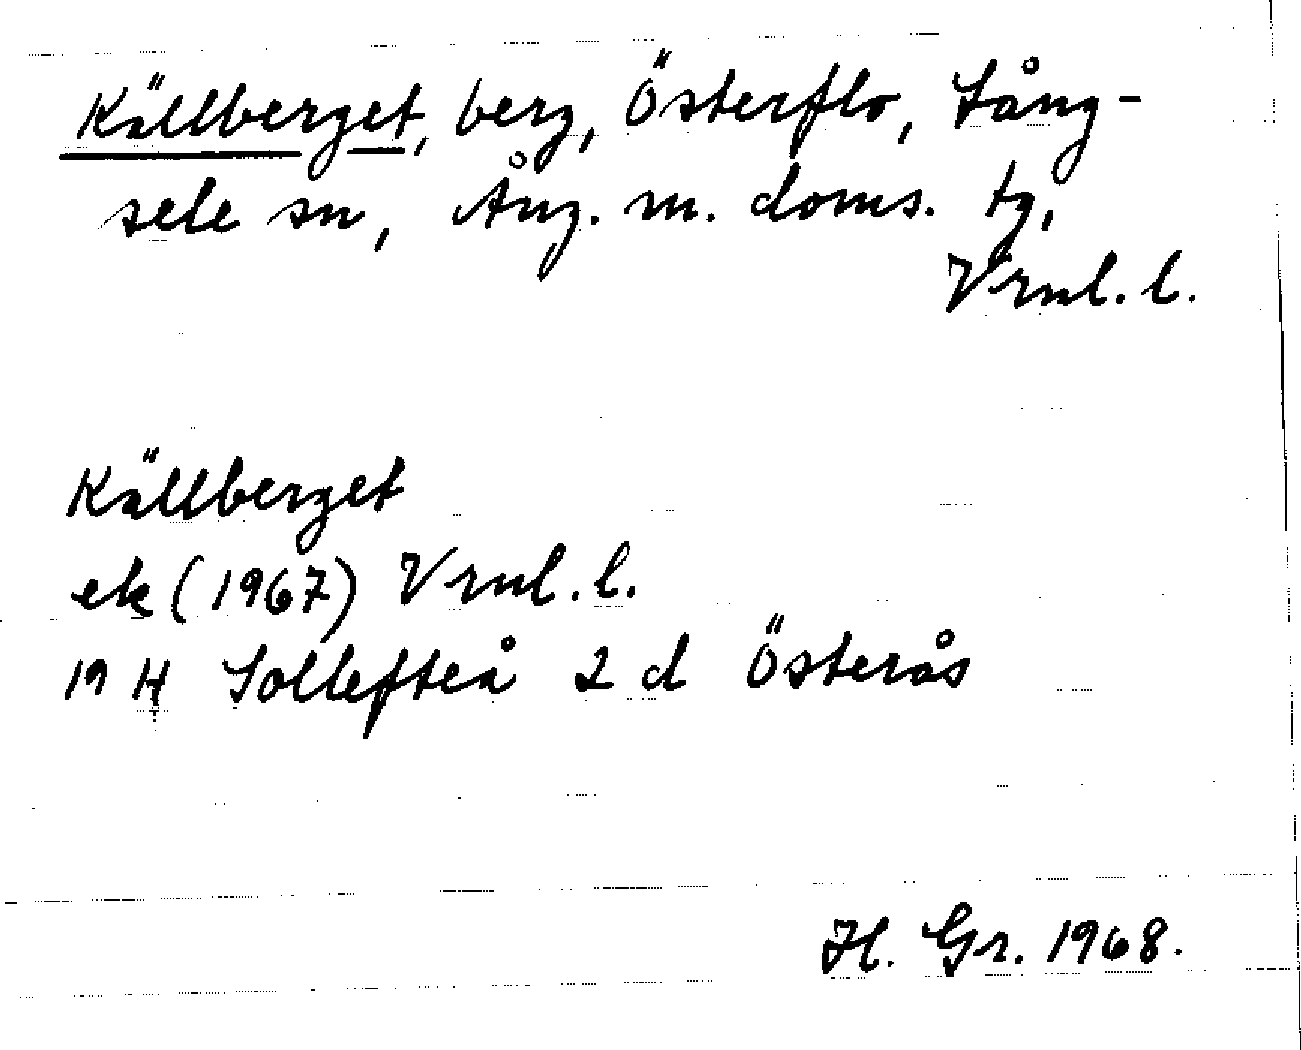 Källberget, berg, Österflo, Lång-
sele sn, Ång. m. doms. tg,
Vrnl. l.
Källberget
ek (1967) Vrnl. l.
19 H Sollefteå 2 d Österås
H. Gr. 1968.